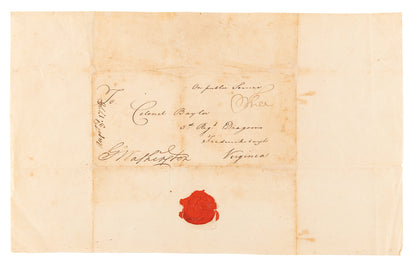 On public Service
Free
To
Colonel Baylor
3d Regt Dragoons
Fredericksburgh
Virginia
G:Washington